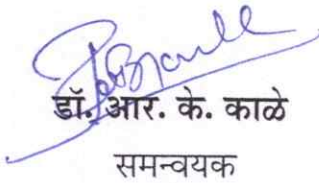 डॉ. आर. के. काळे
समन्वयक